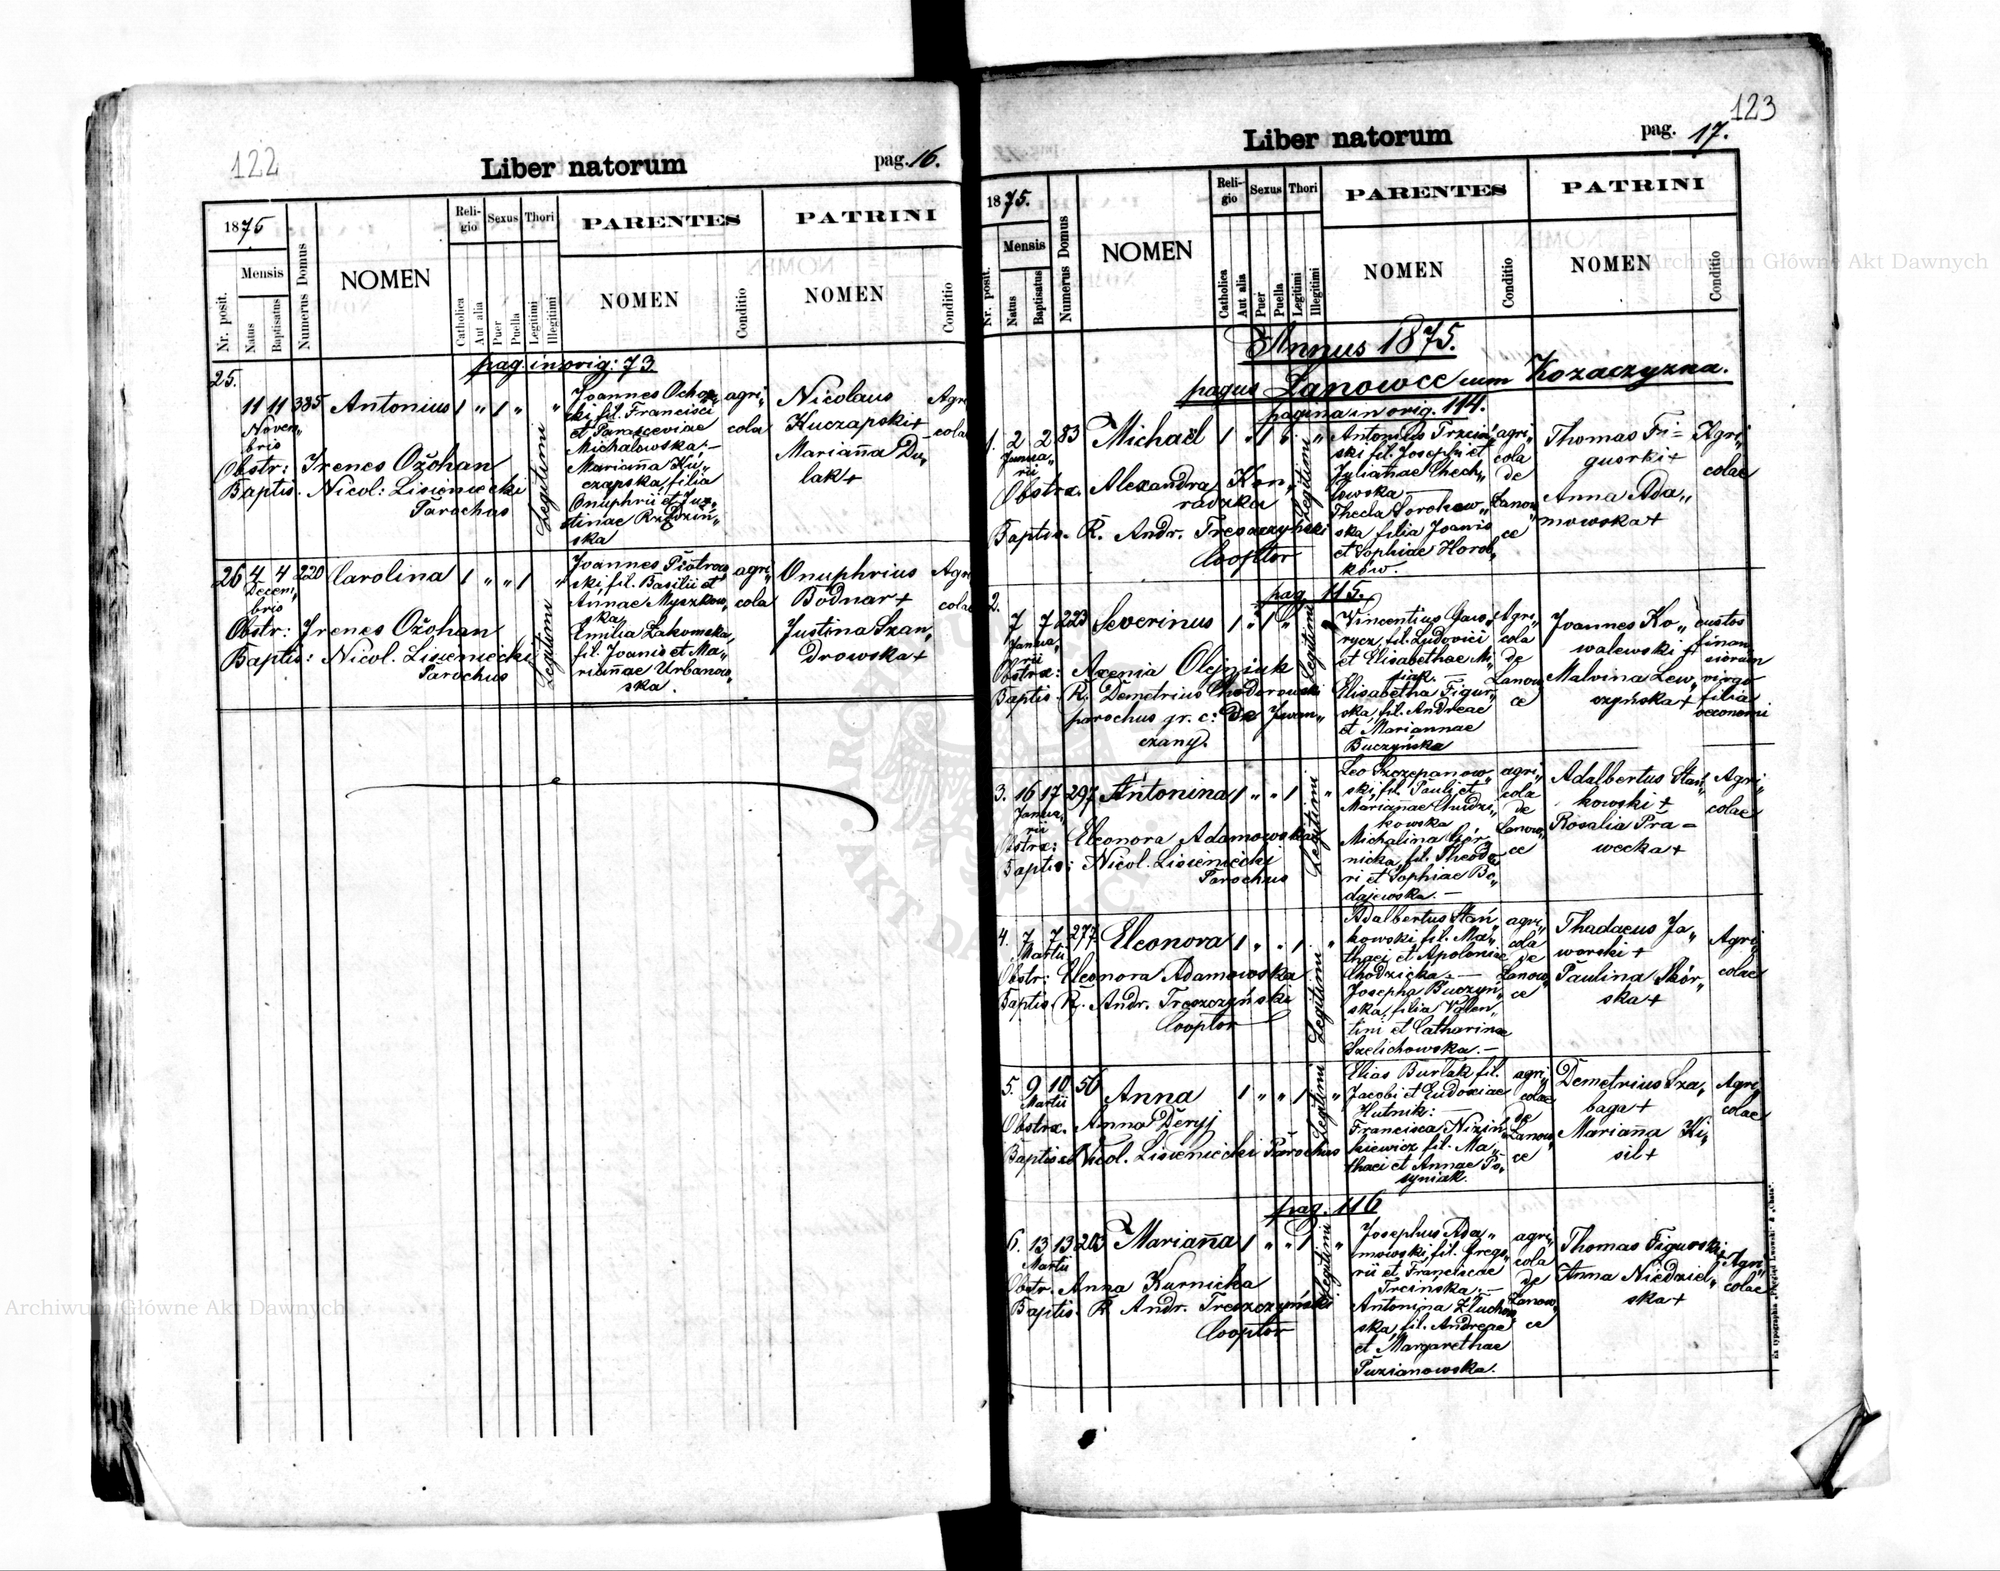 122
Liber natorum
pag. 16.
1875
Nr. posit.
Mensis
Natus
Baptisatus
Numerus Domus
NOMEN
Reli-
gio
Catholica
Aut alia
Sexus
Puer
Puella
Thori
Legitimi
Illegitimi
PARENTES
NOMEN
Conditio
PATRINI
NOMEN
Conditio
pag. in orig: 73
25.
11 11 385 Antonius 1 " 1 " "
Novem„
bris
Obstr: Irenes Ożohan
Baptis. Nicol: Lisieniecki
Parochus
Legitimi
Joannes Ochoc
ki, fil. Francisci
et Parasceviae
Michalowska;—
Marianna Ku„
czapska, filia
Onuphrii et Jus„
tinae
ska
agri„
cola
Nicolaus
Kuczapski +
Marianna Du„
lak +
Agri
colae
26 4 4 220 Carolina 1 " " 1 "
Decem„
bris
Obstr: Irenes Ożohan
Baptis: Nicol. Lisieniecki
Parochus
Legitimi
Joannes Piotrow
ski, fil. Basilii et
Annae Myszkow„
ska
Emilia Zakomska,
fil. Joanis et Ma„
riannae Urbanow„
ska.
agri„
cola
Onuphrius
Bodnar +
Justina Szan„
drowska +
Agri
colae
123
Liber natorum
pag. 17.
1875.
Nr. posit.
Mensis
Natus
Baptisatus
Numerus Domus
NOMEN
Reli-
gio
Catholica
Aut alia
Sexus
Puer
Puella
Thori
Legitimi
Illegitimi
PARENTES
NOMEN
Conditio
PATRINI
NOMEN
Conditio
Annus 1875.
pagus Lanowce cum Kozaczyzna.
pagina in orig. 114.
1. 2 2 83 Michaël 1 " 1 " "
Janua„
rii
Obstrx. Alexandra Kon„
radzka
Baptis. R. Andr. Treszczyński
Cooptor
Legitimi
Antonius Trzciń„
ski fil. Josephi et
Julianae Chech„
lowska —
Thecla Dorohow„
ska filia Joanis
et Sophiae Horod„
ków.
agri„
cola
de
Lanow„
ce
Thomas Fi=
gurski +
Anna Ada„
mowska +
Agri„
colae
pag. 115.
2.
7 7 223 Severinus 1 " 1 "
Janua„
rii
Obstrx: Axenia Olejniuk
Baptis. R. Demetrius Chodorowski
parochus gr. c: de Iwan„
czany.
Legitimi
Vincentius Gaw„
rycz, fil. Ludovici
et Elisabethae Mi„
siak. —
Elisabetha Figur„
ska, fil. Andreae
et Mariannae
Buczyńska
Agri„
cola
de
Lanow„
ce
Joannes Ko„
walewski +
Malvina Lew„
czyńska +
custos
finan„
siarum
virgo
filia
oeconomi
3. 16 17 297 Antonina 1 " " 1 "
Janua„
rii
Obstrx: Eleonora Adamowska
Baptis: Nicol. Lisieniecki
Parochus
Legitimi
Leo Szczepanow„
ski, fil. Pauli et
Mariannae Chudzi„
kowska
Michalina Gór„
nicka, fil. Theodo
ri et Sophiae Bo„
dajewska. —
agri„
cola
de
Lanow„
ce
Adalbertus Stań„
kowski +
Rosalia Pra=
wecka +
Agri„
colae
4. 7 7 277 Eleonora 1 " " 1 "
Martii
Obstr: Eleonora Adamowska
Baptis. R. Andr. Treszczyński
Cooptor
Legitimi
Adalbertus Stań„
kowski, fil. Ma„
thaei et Apoloniae
Chodzicka. —
Josepha Buczyń„
ska, filia Valen„
tini et Catharinae
Szelichowska. —
agri„
cola
de
Lanow„
ce
Thadaeus Ja„
worski +
Paulina Skór„
ska +
Agri„
colae
5. 9 10 56 Anna 1 " " 1 "
Martii
Obstrx. Anna Deryj
Baptis. Nicol. Lisieniecki Parochus
Legitimi
Elias Burlak fil.
Jacobi et Eudoxiae
Kutnik: —
Francisca Nizin„
kiewicz fil. Ma„
thaei et Annae Po„
syniak.
agri„
colae
de
Lanow„
ce
Demetrius Sza„
baga +
Marianna Ki„
sil +
Agri„
colae
pag. 116
6. 13 13 203 Marianna 1 " " 1 "
Martii
Obstr. Anna Kurnicka
Baptis. R. Andr. Treszczyński
Cooptor
Legitimi
Josephus Ada„
mowski, fil. Grego„
rii et Franciscae
Trcinska. —
Antonina Złuchow
ska, fil. Andreae
et Margarethae
Puzianowska.
agri„
cola
de
Lanow„
ce
Thomas Figurski +
Anna Niedziel„
ska +
Agri„
colae
Archiwum Główne Akt Dawnych
Archiwum Główne Akt Dawnych